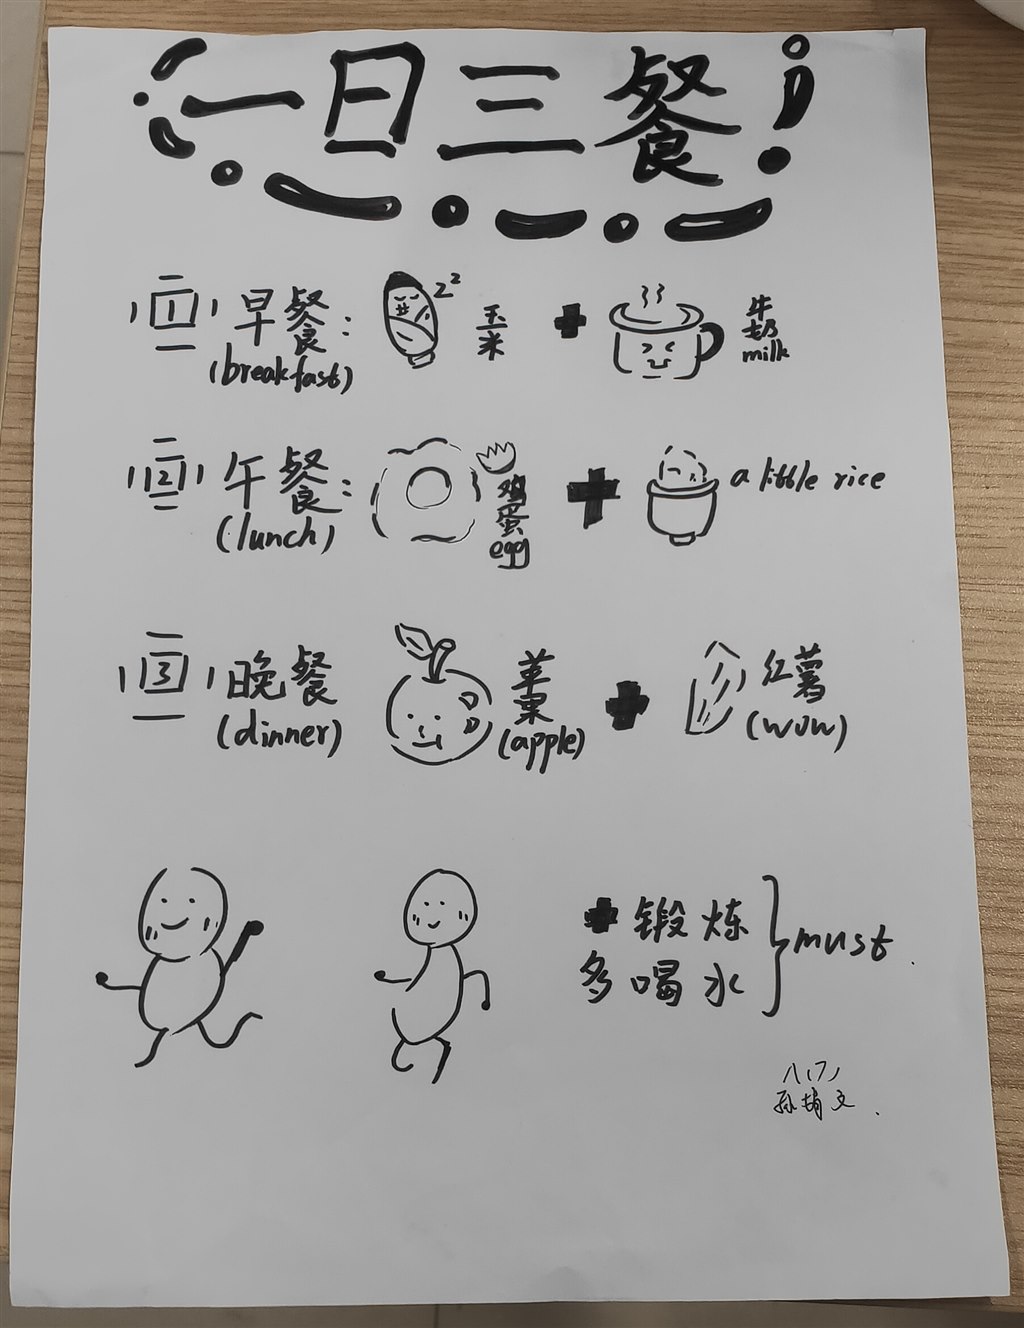 一日三餐
1 早餐:
(breakfast)
zz
玉米
牛奶
milk
2 午餐:
(lunch)
鸡蛋
egg
a little rice
3 晚餐
(dinner)
苹果
(apple)
红薯
(wow)
锻炼
多喝水
must